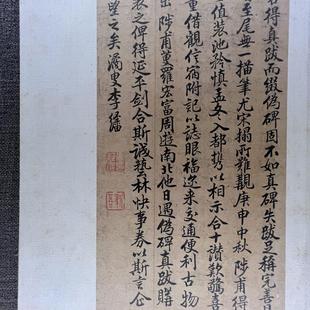 得真跋而缀偽碑固不如真碑失跋足稱完善且
至尾無一描筆尤宋搨所難觀庚申中秋陟甫得
值裝池矜慎孟冬入都攜以相示合十讚歎驩喜
重借觀信宿附記以誌眼福邇來交通便利古物
出陟甫蒐羅宏富周遊南北他日遇偽碑真跋購
表之俾得延平劍合斯誠藝林快事券以斯言企
望之矣潏叟李